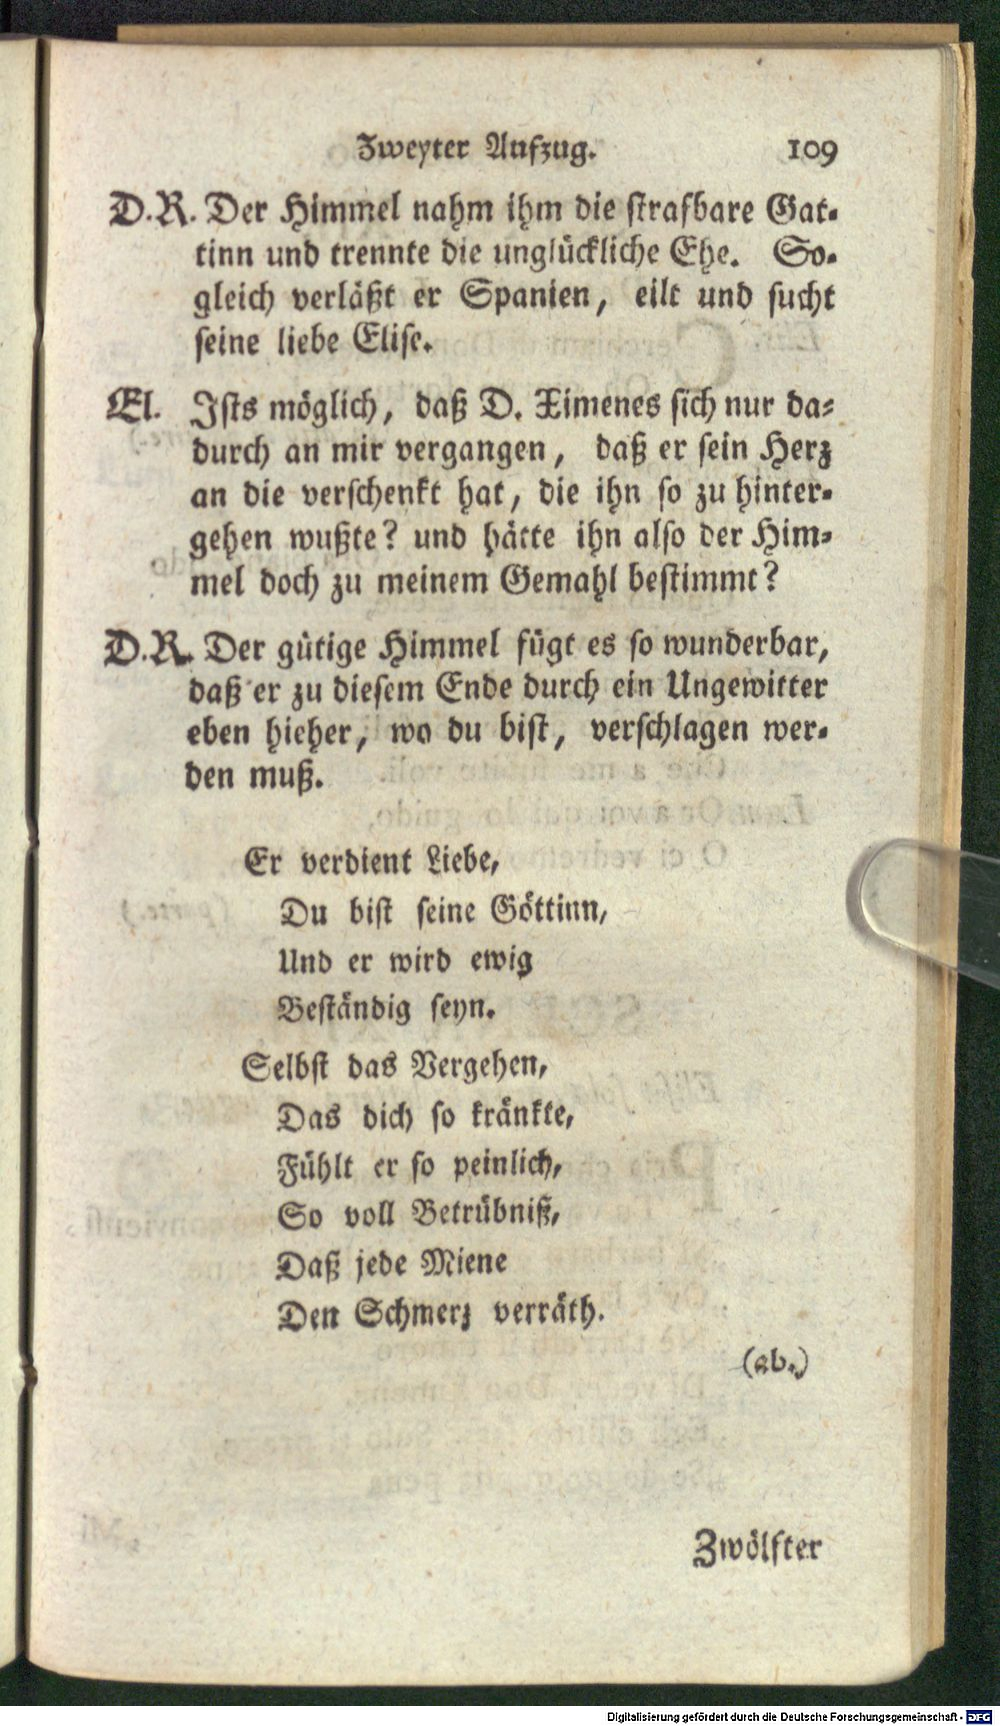 Zweyter Aufzug. 109
D.R. Der Himmel nahm ihm die strafbare Gat-
tinn und trennte die unglückliche Ehe. So-
gleich verläßt er Spanien, eilt und sucht
seine liebe Elise.
El. Ists möglich, daß D. Ximenes sich nur da-
durch an mir vergangen, daß er sein Herz
an die verschenkt hat, die ihn so zu hinter-
gehen wußte? und hätte ihn also der Him-
mel doch zu meinem Gemahl bestimmt?
D.R. Der gütige Himmel fügt es so wunderbar,
daß er zu diesem Ende durch ein Ungewitter
eben hieher, wo du bist, verschlagen wer-
den muß.
Er verdient Liebe,
Du bist seine Göttinn,
Und er wird ewig
Beständig seyn.
Selbst das Vergehen,
Das dich so kränkte,
Fühlt er so peinlich,
So voll Betrübniß,
Daß jede Miene
Den Schmerz verräth.
(ab.)
Zwölfter
Digitalisierung gefördert durch die Deutsche Forschungsgemeinschaft - DFG